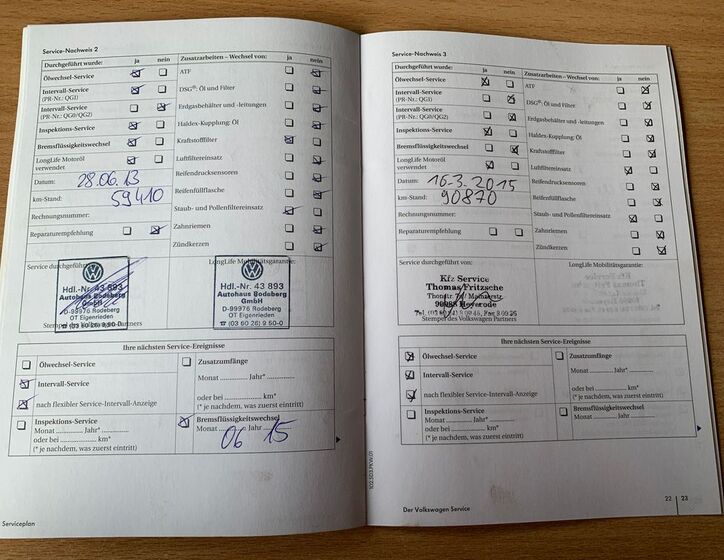 Service-Nachweis 2
Durchgeführt wurde: ja nein
Ölwechsel-Service
Intervall-Service
(PR-Nr.: QG1)
Intervall-Service
(PR-Nr.: QG0/QG2)
Inspektions-Service
Bremsflüssigkeitswechsel
LongLife Motoröl
verwendet
Datum: 28.06.13
km-Stand: 59410
Rechnungsnummer:
Reparaturempfehlung
Zusatzarbeiten – Wechsel von: ja nein
ATF
DSG®: Öl und Filter
Erdgasbehälter und -leitungen
Haldex-Kupplung: Öl
Kraftstofffilter
Luftfiltereinsatz
Reifendrucksensoren
Reifenfüllflasche
Staub- und Pollenfiltereinsatz
Zahnriemen
Zündkerzen
Service durchgeführt
Hdl.-Nr. 43 893
Autohaus Bodeberg
GmbH
D-99976 Rodeberg
OT Eigenrieden
Stempel des Partners
LongLife Mobilitätsgarantie:
Hdl.-Nr. 43 893
Autohaus Bodeberg
GmbH
D-99976 Rodeberg
OT Eigenrieden
☎ (03 60 26) 9 50-0
Ihre nächsten Service-Ereignisse
Ölwechsel-Service
Intervall-Service
nach flexibler Service-Intervall-Anzeige
Inspektions-Service
Monat Jahr*
oder bei km*
(* je nachdem, was zuerst eintritt)
Zusatzumfänge
Monat Jahr*
oder bei km*
(* je nachdem, was zuerst eintritt)
Bremsflüssigkeitswechsel
Monat Jahr
06 15
Serviceplan
Service-Nachweis 3
Durchgeführt wurde: ja nein
Ölwechsel-Service
Intervall-Service
(PR-Nr.: QG1)
Intervall-Service
(PR-Nr.: QG0/QG2)
Inspektions-Service
Bremsflüssigkeitswechsel
LongLife Motoröl
verwendet
Datum: 16.3.2015
km-Stand: 90870
Rechnungsnummer:
Reparaturempfehlung
Zusatzarbeiten – Wechsel von: ja nein
ATF
DSG®: Öl und Filter
Erdgasbehälter und -leitungen
Haldex-Kupplung: Öl
Kraftstofffilter
Luftfiltereinsatz
Reifendrucksensoren
Reifenfüllflasche
Staub- und Pollenfiltereinsatz
Zahnriemen
Zündkerzen
Service durchgeführt von:
Kfz Service
Thomas Fritzsche
Stempel des Volkswagen Partners
LongLife Mobilitätsgarantie:
Ihre nächsten Service-Ereignisse
Ölwechsel-Service
Intervall-Service
nach flexibler Service-Intervall-Anzeige
Inspektions-Service
Monat Jahr*
oder bei km*
(* je nachdem, was zuerst eintritt)
Zusatzumfänge
Monat Jahr*
oder bei km*
(* je nachdem, was zuerst eintritt)
Bremsflüssigkeitswechsel
Monat Jahr
Der Volkswagen Service
22 23